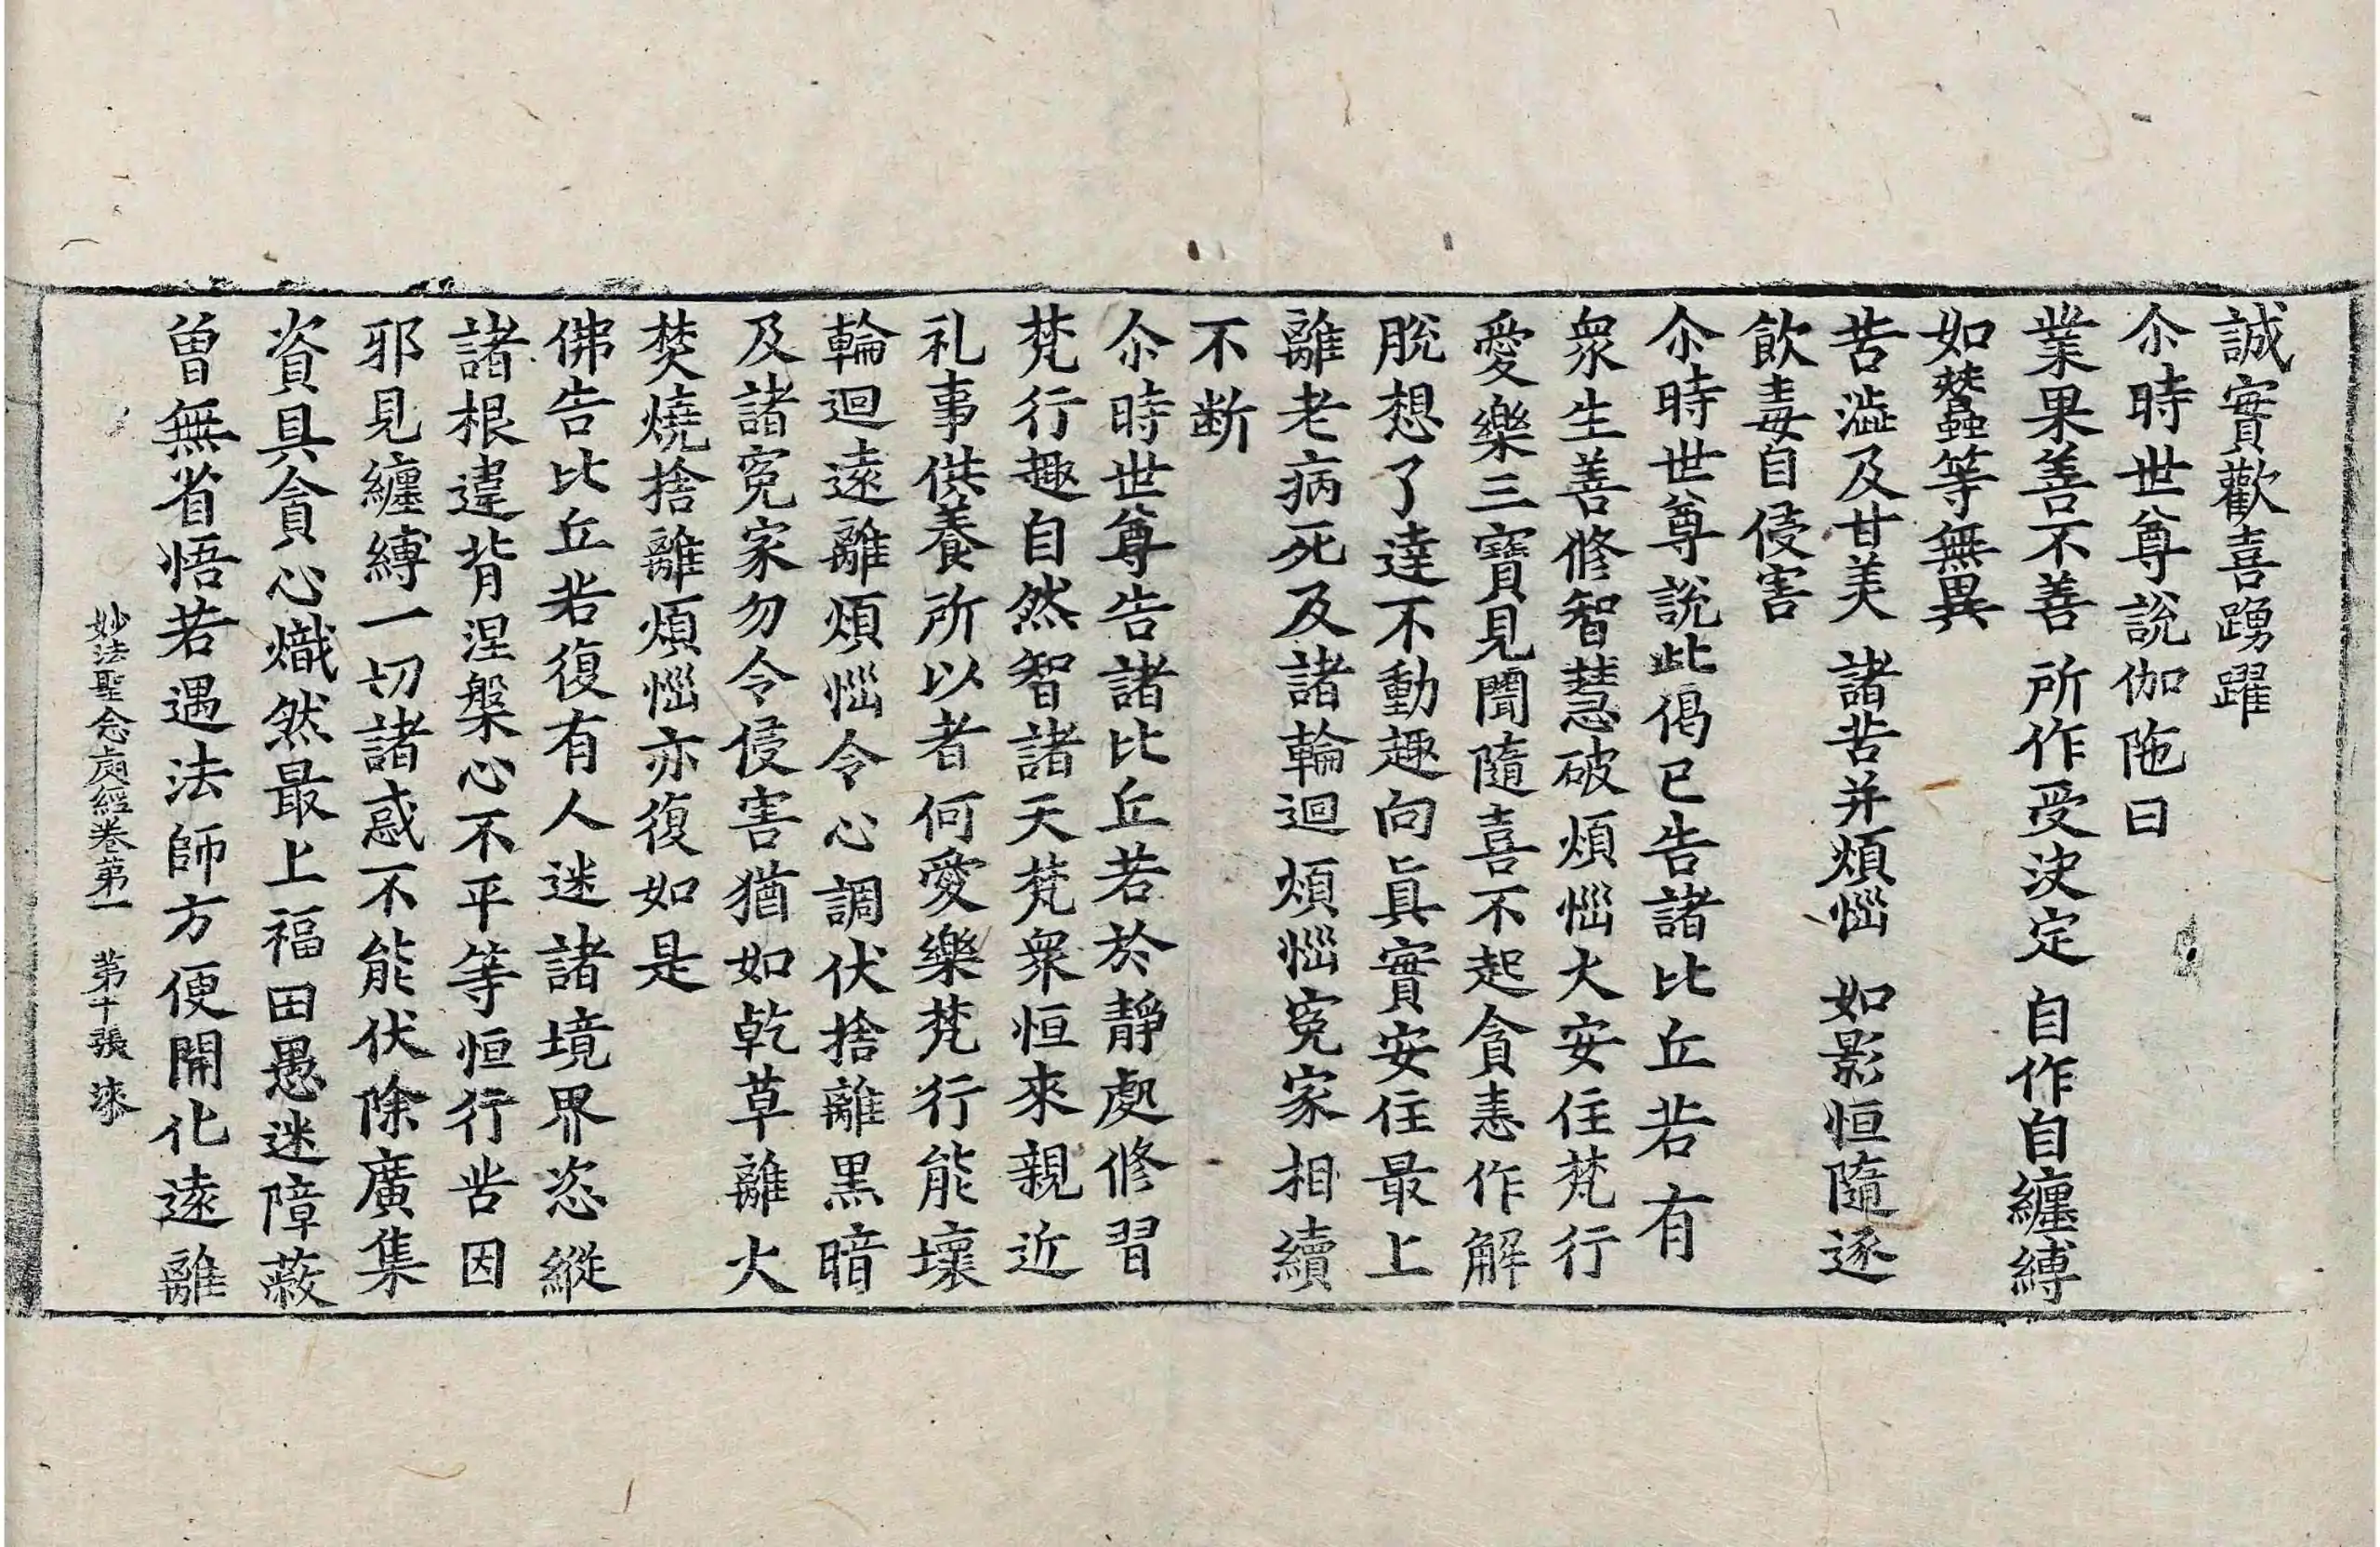 誠實歡喜踴躍
尒時世尊說伽陁曰
業果善不善 所作受決定 自作自纏縛
如蠶等無異
苦澁及甘美 諸苦并煩惱 如影恒隨逐
飲毒自侵害
尒時世尊說此偈已告諸比丘若有
衆生善修智慧破煩惱火安住梵行
愛樂三寶見聞隨喜不起貪恚作解
脫想了達不動趣向眞實安住最上
離老病死及諸輪迴煩惱寃家相續
不断
尒時世尊告諸比丘若於靜處修習
梵行趣自然智諸天梵衆恒來親近
礼事供養所以者何愛樂梵行能壞
輪迴遠離煩惱令心調伏捨離黑暗
及諸寃家勿令侵害猶如乾草離火
焚燒捨離煩惱亦復如是
佛告比丘若復有人迷諸境界恣縱
諸根違背涅槃心不平等恒行苦因
邪見纏縛一切諸惑不能伏除廣集
資具貪心熾然最上福田愚迷障蔽
曾無省悟若遇法師方便開化遠離
妙法聖念處經卷第一 第十張 漆